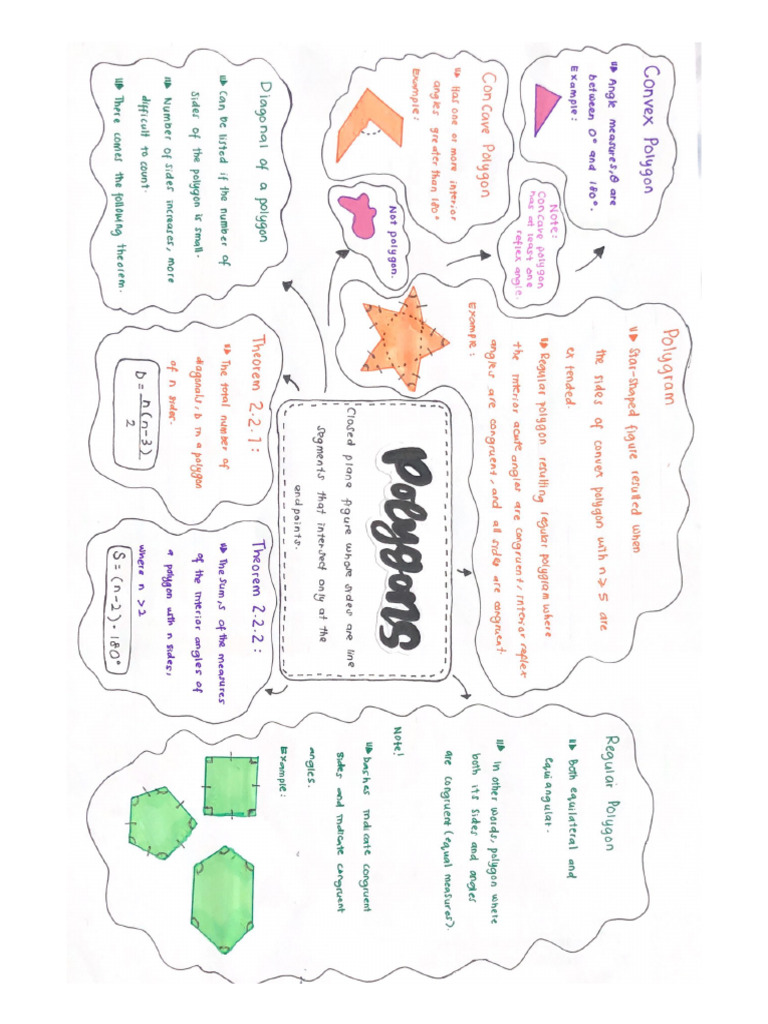 Polygons
Closed plane figure whose sides are line
segments that intersect only at the
endpoints.
Convex Polygon
Angle measures, θ are
between 0° and 180°.
Example:
Note:
Concave polygon
has at least one
reflex angle
Concave Polygon
Has one or more interior
angles greater than 180°
Example:
Not polygon.
Diagonal of a polygon
Can be listed if the number of
sides of the polygon is small.
Number of sides increases, more
difficult to count.
There comes the following theorem.
Polygram
Star-shaped figure resulted when
the sides of convex polygon with n ≥ 5 are
extended.
Regular polygon resulting regular polygram where
the interior acute angles are congruent, interior reflex
angles are congruent, and all sides are congruent.
Example:
Theorem 2.2.1:
The total number of
diagonals, D in a polygon
of n sides.
D = n(n-3)
2
Theorem 2.2.2:
The sum, S of the measures
of the interior angles of
a polygon with n sides,
where n > 2
S = (n-2) · 180°
Regular Polygon
Both equilateral and
equiangular.
In other words, polygon where
both its sides and angles
are congruent (equal measures).
Note!
Dashes indicate congruent
sides and indicate congruent
angles.
Example: